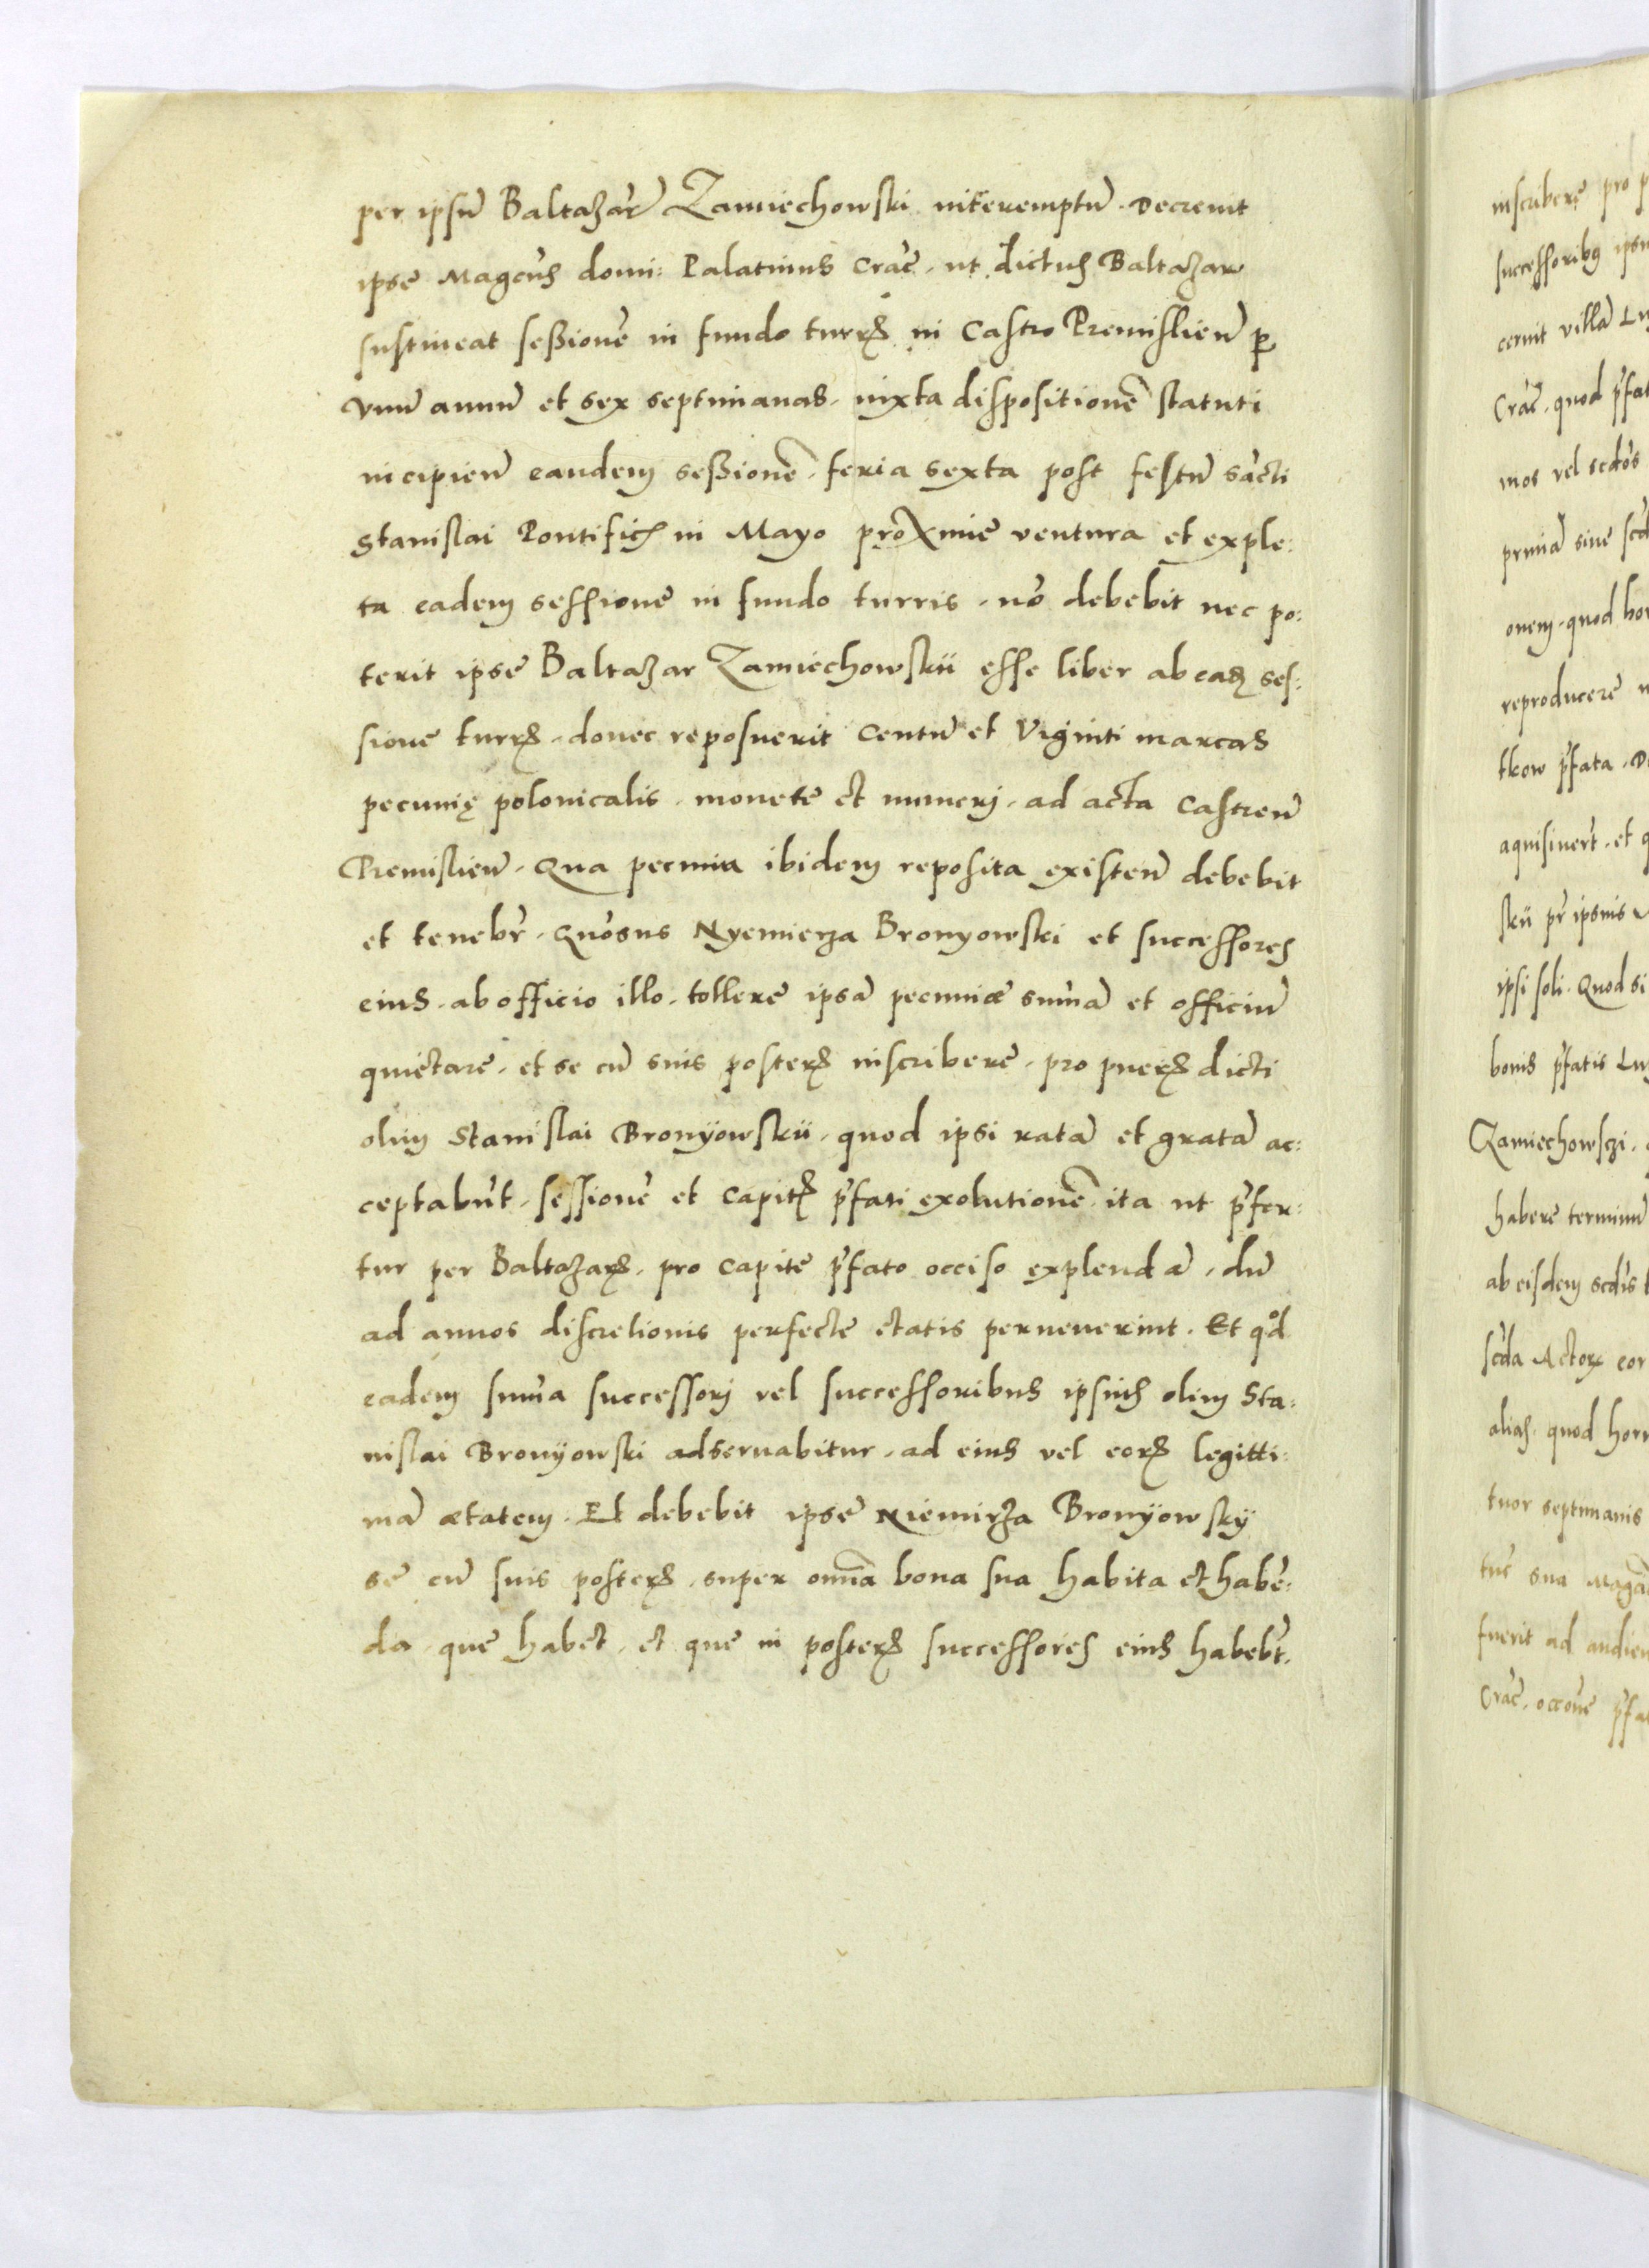 per ipsū Baltazar̄ Zamiechowski interemptū. Decreuit
ipse Magcus domi: Palatinus Crac̄. ut dictus Baltazar
sustineat seßionē in fundo turris in Castro Premislien̄ p
vnū annū et sex septimanas. iuxta dispositionē statuti
incipien̄ eandem seßionē. feria sexta post festū sācti
Stanislai Pontificis in Mayo proxime ventura et exple:
ta eadem sessione in fundo turris. nō debebit nec po:
terit ipse Baltazar Zamiechowskii esse liber ab eadē ses:
sione turris. donec reposuerit Centū et Viginti marcas
pecunię polonicalis. monete et numeri. ad acta Castren̄
Premislien̄. Qua pecunia ibidem reposita existen̄ debebit
et tenebr̄. Quōsus Nyemierza Bronyowski et successores
eius. ab officio illo. tollere ipsā pecuniæ sum̄ā et officiū
quietare. et se cū suis posteris inscribere. pro pueris dicti
olim Stanislai Bronÿowskii. quod ipsi ratā et gratā ac:
ceptabūt. sessionē et capitis p̄fati exolutionē. ita ut p̄fer:
tur per Baltazarē. pro capite p̄fato occiso explendā. dū
ad annos discretionis perfecte etatis peruenerint. Et qod
eadem sum̄a successori vel successoribus ipsius olim Sta:
nislai Bronÿowski adseruabitur. ad eius vel eorū legitti:
mā ætatem. Et debebit ipse Niemirza Bronÿowskÿ
se cū suis posteris. super omn̄ia bona sua habita et habē:
da. que habet. et que in posterū successores eius habebt̄.
inscribere pro p
successoribus ipsi
cernit villā
Crac̄. quod p̄fat
mos vel scdos
primā siue scd
onem. quod
reproducere
tkow p̄fata.
aquisiuert̄. et
skii pr̄ ipsuis
ipsi soli. Quod si
bonis p̄fatis
Zamiechowsczi.
habere terminū
ab eisdem scdis
scda Actor cor
alias. quod horū
tuor septimanis
sua Magcā
fuerit ad audien
Crac̄. p̄fa